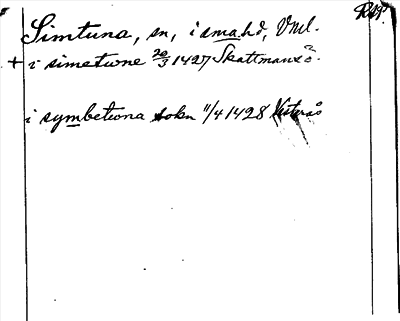 Rsg.
Simtuna, sn, i smahd, Vml.
+ i simetwne 20/3 1427 Skattmansö.
i symbetuna sokn 11/4 1428 Västerås